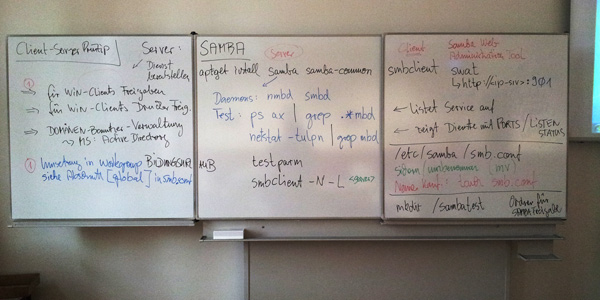 Client-Server Prinzip
Server:
Dienst
bereitstellen
① für WiN-Clients Freigaben
⇒ für WiN-Clients Drucker Freig.
⇒ DOMÄNEN-Benutzer-Verwaltung
↳ MS: Active Directory
① Umsetzung in Workgroup
siehe Abschnitt [global] in smb.conf
SAMBA
Server
samba samba-common
Daemons: nmbd smbd
Test: ps ax | grep .*mbd
netstat -tulpn | grep mbd
testparm
smbclient -N -L <server>
Client
Samba Web
Administration Tool
smbclient
swat
↳ http://<ip-srv>:901
← Listet Service auf
← zeigt Dienste mit PORTS/LISTEN
STATUS
/etc/samba/smb.conf
sichern/umbenennen mv
Neue Konf. touch smb.conf
mkdir /sambatest
Ordner für